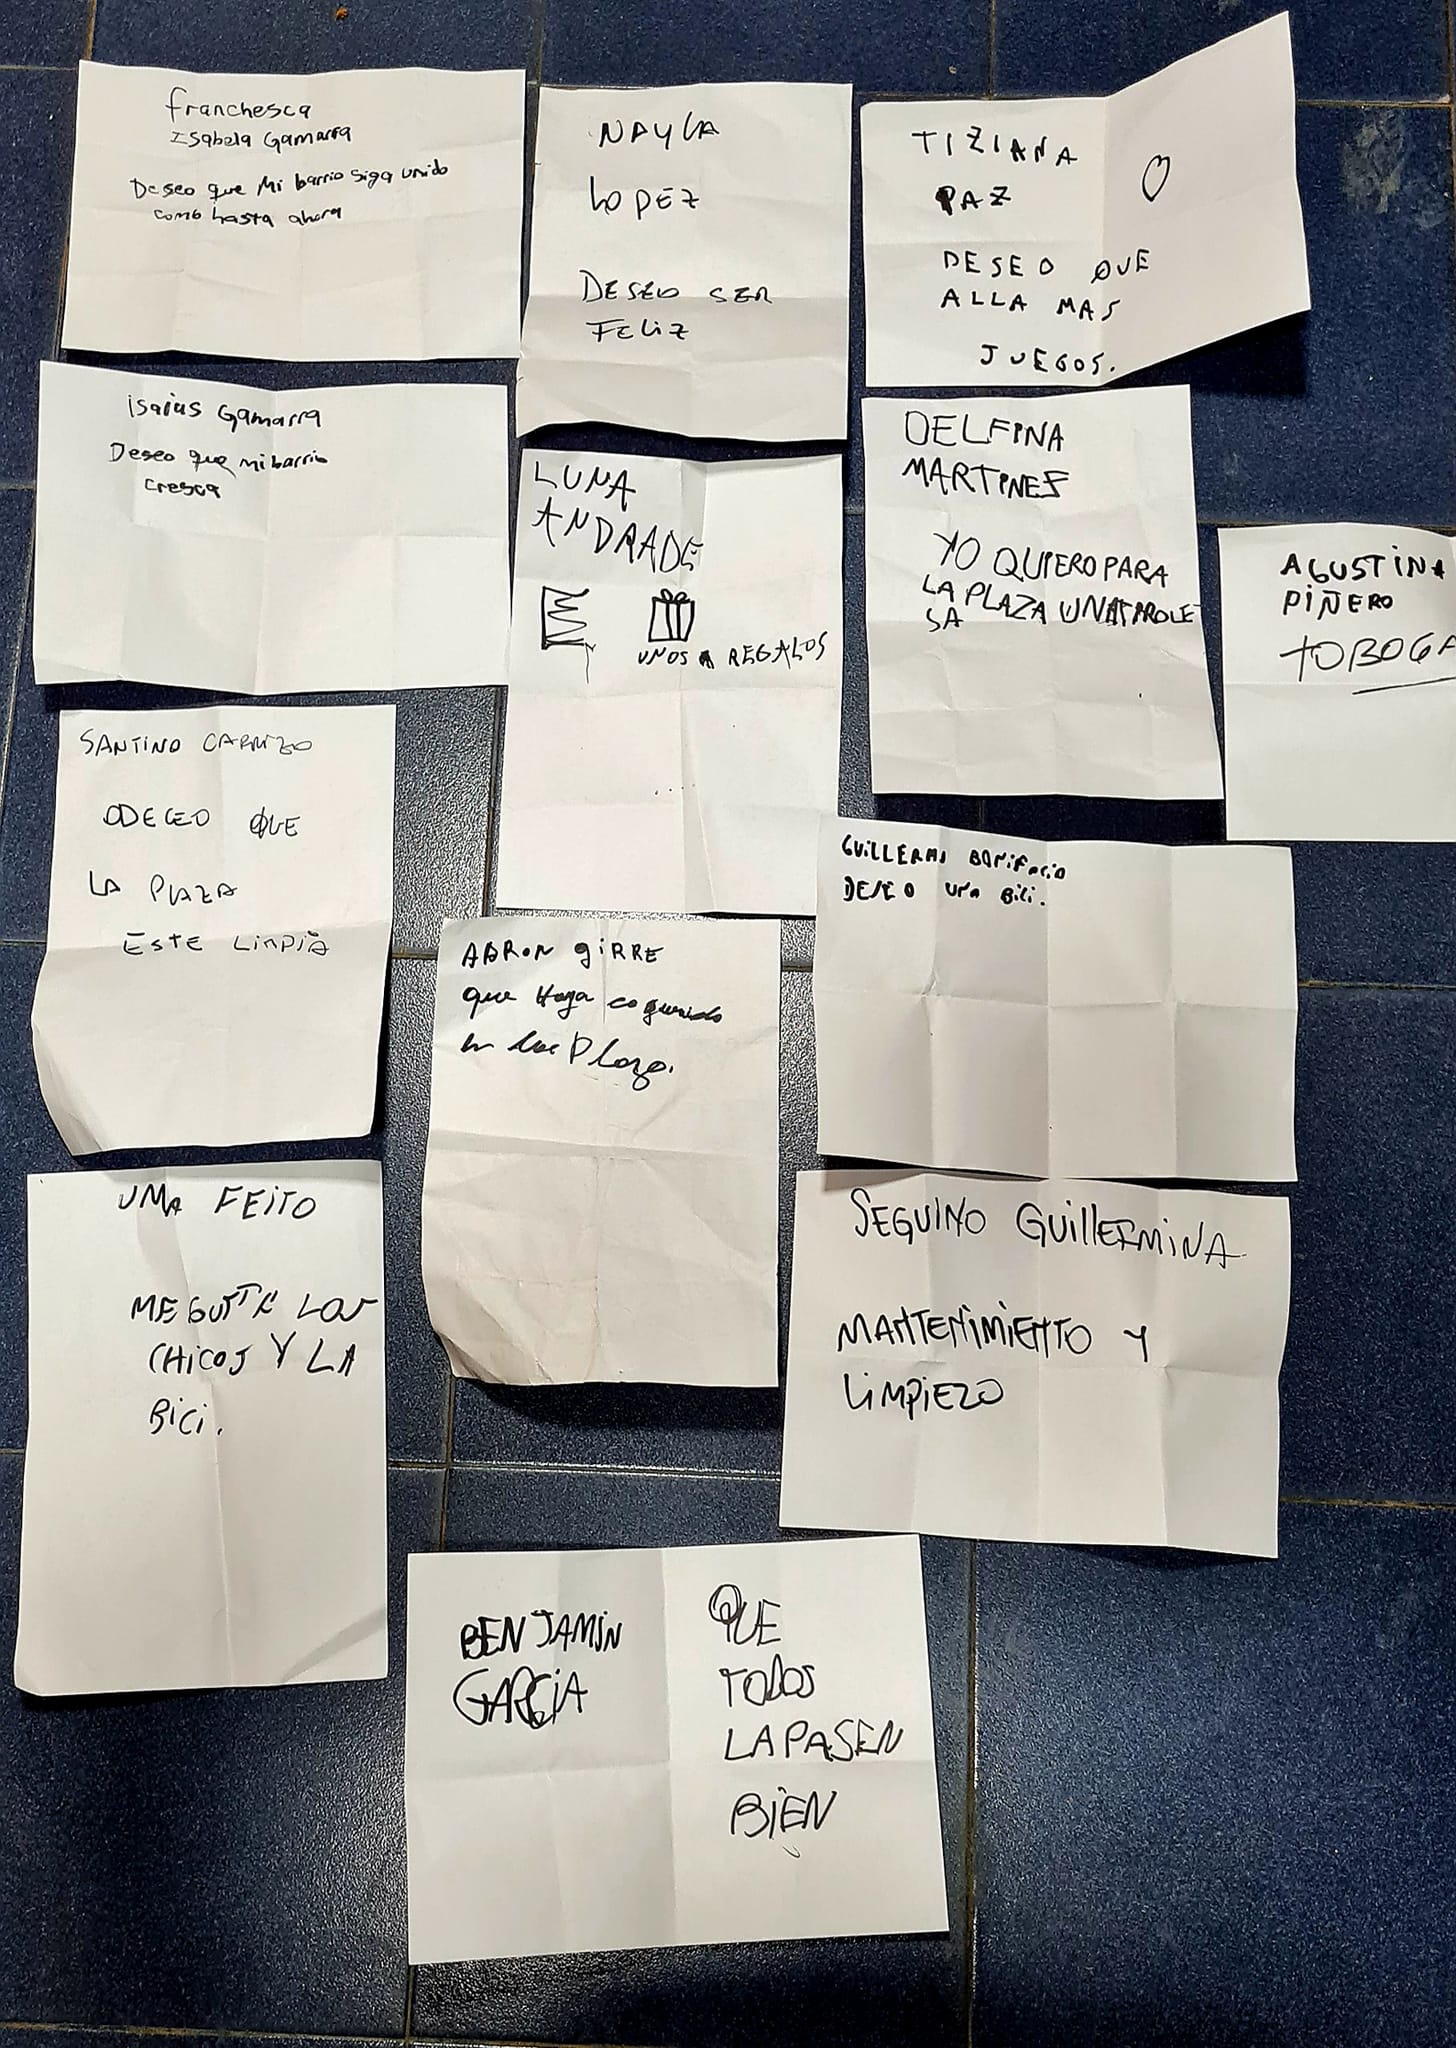 franchesca
Isabela Gamarra
Deseo que Mi barrio siga unido
como hasta ahora
NAYLA
LOPEZ
DESEO SER
FELIZ
TIZIANA
PAZ
DESEO QUE
ALLA MAS
JUEGOS.
isaias Gamarra
Deseo que mi barrio
cresca
LUNA
ANDRADE
UNOS REGALOS
DELFINA
MARTINEZ
YO QUIERO PARA
LA PLAZA UNA
SA
AGUSTINA
PIÑERO
TOBOGA
SANTINO CARRIZO
DECEO QUE
LA PLAZA
ESTE LIMPIA
GUILLERMO BONIFACIO
DESEO UNA BICI.
AARON GIRRE
que Haya
en la Plaza.
UMA FEITO
ME GUSTA LOS
CHICOS Y LA
BICI.
SEGUINO GUILLERMINA
MANTENIMIENTO Y
LIMPIEZA
BENJAMIN
GARCIA
QUE
TODOS
LA PASEN
BIEN